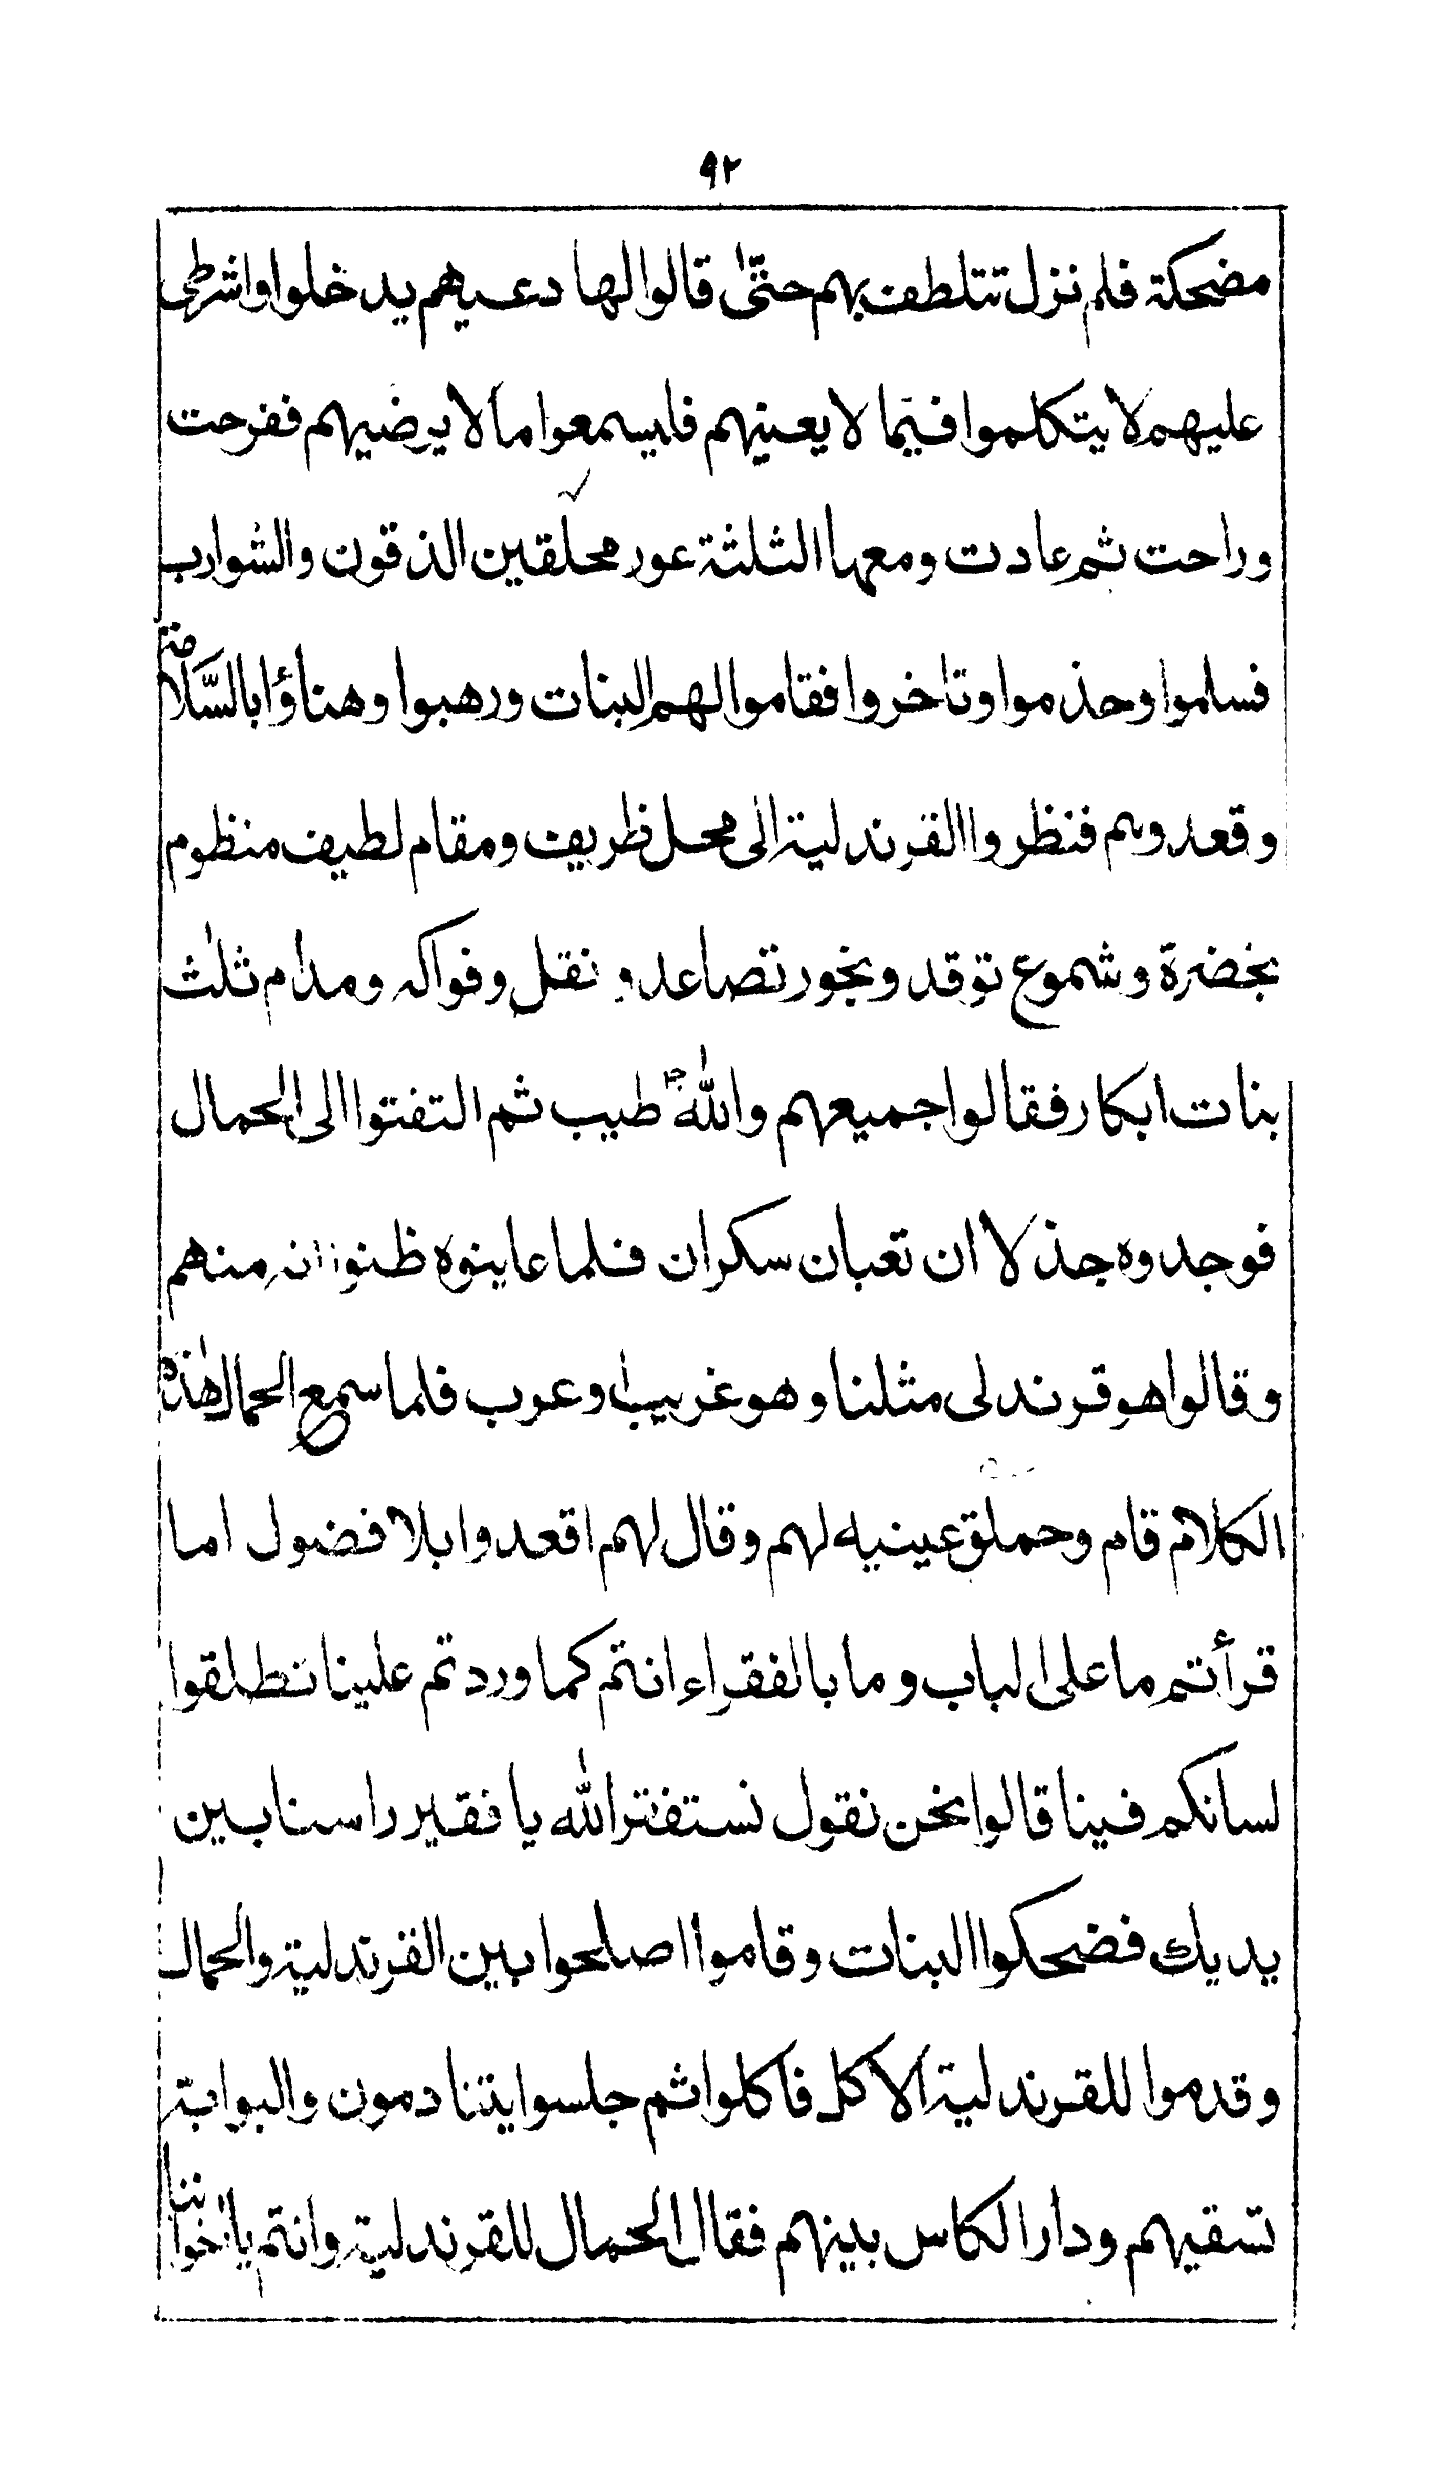 ٩٢
مضحكة فلم نزل تتلطف بهم حتىٰ قالوا لها دعيهم يدخلوا واشرطى
عليهم لا يتكلموا فيما لا يعنيهم فليسمعوا ما لا يرضيهم ففرحت
وراحت ثم عادت ومعها الثلثة عور محلقين الذقون والشوارب
فسلموا وحذموا وتاخروا فقاموا لهم البنات ورهبوا وهناؤا بالسَّلامة
وقعدوهم فنظروا القرندلية الى محل ظريف ومقام لطيف منظوم
بخضرة وشموع توقد وبخور تصاعد ونقل وفواكه ومدام ثلٰث
بنات ابكار فقالوا جميعهم والله طيب ثم التفتوا الى الحمال
فوجدوه جذلا ان تعبان سكران فلما عاينوه ظنوا انه منهم
وقالوا هو قرندلى مثلنا وهو غريب او عرب فلما سمع الحمال هٰذه
الكلام قام وحملق عينيه لهم وقال لهم اقعدوا بلا فضول اما
قرأتم ما على الباب وما بالفقراء انتم كما وردتم علينا تطلقوا
لسانكم فينا قالوا نحن نقول نستفتر الله يا فقير راسنا بين
يديك فضحكوا البنات وقاموا اصلحوا بين القرندلية والحمال
وقدموا للقرندلية الاكل فاكلوا ثم جلسوا يتنادمون والبوابة
تسقيهم ودار الكاس بينهم فقال الحمال للقرندلية وانتم يا اخواننا